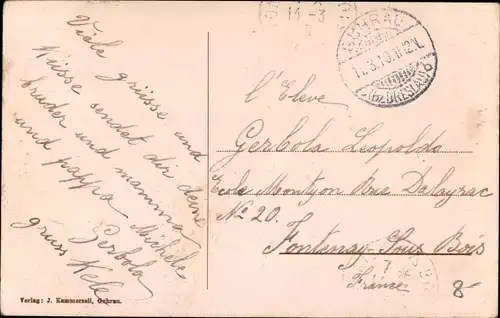 Viele grüsse und
Küsse sendet dir deine
bruder und mamma
und pappa Michele
Gerbola
gruss
Verlag: J. Kammerzell, Guhrau.
GUHRAU
l'Eleve
Gerbola Leopoldo
Ecole Montyon Rue Dalayrac
No 20.
Fontenay-Sous Bois
France
8-